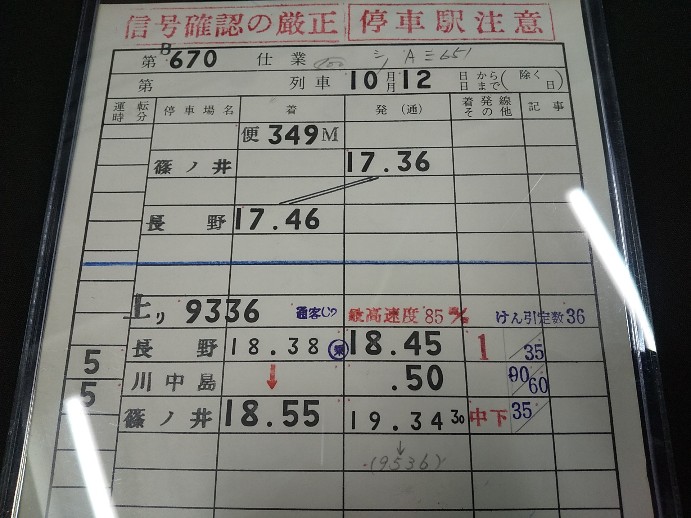 信号確認の厳正 停車駅注意
第 B670 仕業 シ A ミ651
第 列車 10月12 日から 月 日まで (除く 日)
運転時分 停車場名 着 発(通) 着発線その他 記事
便 349M
篠ノ井 17.36
長野 17.46
上り 9336 通客じつ 最高速度85 けん引定数36
長野 18.38 乗 18.45 1 35
5 川中島 ↓ .50 00 60
5 篠ノ井 18.55 19.34 30 中下 35
↓
(9536)